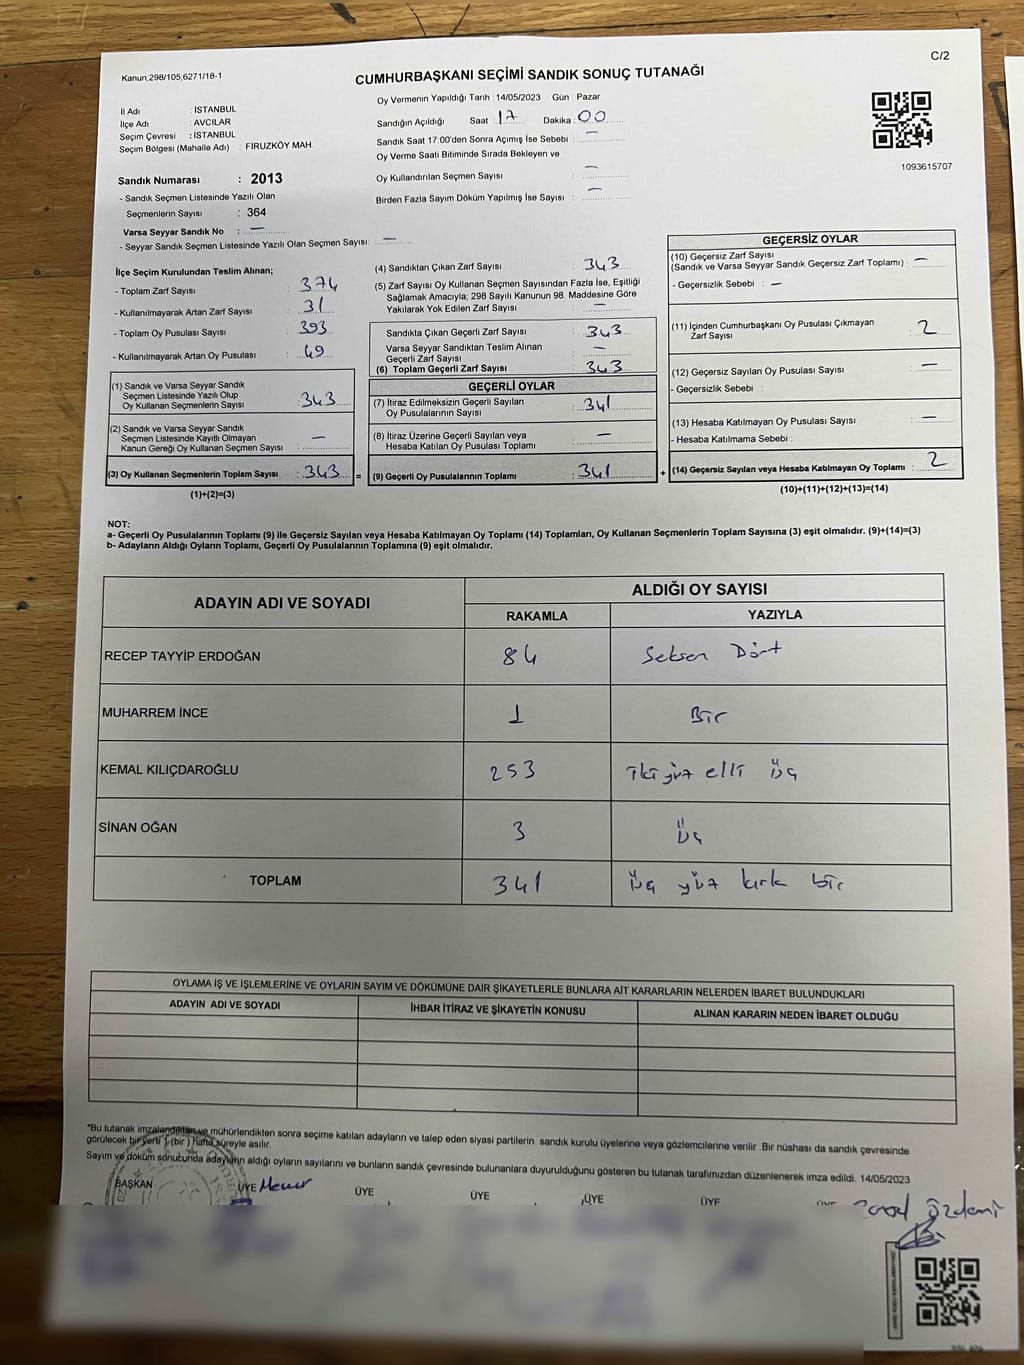 C/2
Kanun;298/105;6271/18-1
CUMHURBAŞKANI SEÇİMİ SANDIK SONUÇ TUTANAĞI
İl Adı : İSTANBUL
İlçe Adı : AVCILAR
Seçim Çevresi : İSTANBUL
Seçim Bölgesi (Mahalle Adı) : FİRUZKÖY MAH.
Oy Vermenin Yapıldığı Tarih : 14/05/2023 Gün : Pazar
Sandığın Açıldığı Saat : 17 Dakika : 00
Sandık Saat 17:00'den Sonra Açımış İse Sebebi : —
Oy Verme Saati Bitiminde Sırada Bekleyen ve
Oy Kullandırılan Seçmen Sayısı : —
Birden Fazla Sayım Döküm Yapılmış İse Sayısı : —
1093615707
Sandık Numarası : 2013
- Sandık Seçmen Listesinde Yazılı Olan
Seçmenlerin Sayısı : 364
Varsa Seyyar Sandık No : —
- Seyyar Sandık Seçmen Listesinde Yazılı Olan Seçmen Sayısı: —
İlçe Seçim Kurulundan Teslim Alınan;
- Toplam Zarf Sayısı : 374
- Kullanılmayarak Artan Zarf Sayısı : 31
- Toplam Oy Pusulası Sayısı : 393
- Kullanılmayarak Artan Oy Pusulası : 49
(1) Sandık ve Varsa Seyyar Sandık
Seçmen Listesinde Yazılı Olup
Oy Kullanan Seçmenlerin Sayısı : 343
(2) Sandık ve Varsa Seyyar Sandık
Seçmen Listesinde Kayıtlı Olmayan
Kanun Gereği Oy Kullanan Seçmen Sayısı : —
(3) Oy Kullanan Seçmenlerin Toplam Sayısı : 343 =
(1)+(2)=(3)
(4) Sandıktan Çıkan Zarf Sayısı : 343
(5) Zarf Sayısı Oy Kullanan Seçmen Sayısından Fazla İse, Eşitliği
Sağlamak Amacıyla, 298 Sayılı Kanunun 98. Maddesine Göre
Yakılarak Yok Edilen Zarf Sayısı : —
Sandıkta Çıkan Geçerli Zarf Sayısı : 343
Varsa Seyyar Sandıktan Teslim Alınan
Geçerli Zarf Sayısı : —
(6) Toplam Geçerli Zarf Sayısı : 343
GEÇERLİ OYLAR
(7) İtiraz Edilmeksizin Geçerli Sayılan
Oy Pusulalarının Sayısı : 341
(8) İtiraz Üzerine Geçerli Sayılan veya
Hesaba Katılan Oy Pusulası Toplamı : —
(9) Geçerli Oy Pusulalarının Toplamı : 341 +
GEÇERSİZ OYLAR
(10) Geçersiz Zarf Sayısı
(Sandık ve Varsa Seyyar Sandık Geçersiz Zarf Toplamı) : —
- Geçersizlik Sebebi : —
(11) İçinden Cumhurbaşkanı Oy Pusulası Çıkmayan
Zarf Sayısı : 2
(12) Geçersiz Sayılan Oy Pusulası Sayısı : —
- Geçersizlik Sebebi :
(13) Hesaba Katılmayan Oy Pusulası Sayısı : —
- Hesaba Katılmama Sebebi :
(14) Geçersiz Sayılan veya Hesaba Katılmayan Oy Toplamı : 2
(10)+(11)+(12)+(13)=(14)
NOT:
a- Geçerli Oy Pusulalarının Toplamı (9) ile Geçersiz Sayılan veya Hesaba Katılmayan Oy Toplamı (14) Toplamları, Oy Kullanan Seçmenlerin Toplam Sayısına (3) eşit olmalıdır. (9)+(14)=(3)
b- Adayların Aldığı Oyların Toplamı, Geçerli Oy Pusulalarının Toplamına (9) eşit olmalıdır.
ADAYIN ADI VE SOYADI
ALDIĞI OY SAYISI
RAKAMLA YAZIYLA
RECEP TAYYİP ERDOĞAN 84 Seksen Dört
MUHARREM İNCE 1 Bir
KEMAL KILIÇDAROĞLU 253 ikiyüz elli üç
SİNAN OĞAN 3 üç
TOPLAM 341 üç yüz kırk bir
OYLAMA İŞ VE İŞLEMLERİNE VE OYLARIN SAYIM VE DÖKÜMÜNE DAİR ŞİKAYETLERLE BUNLARA AİT KARARLARIN NELERDEN İBARET BULUNDUKLARI
ADAYIN ADI VE SOYADI İHBAR İTİRAZ VE ŞİKAYETİN KONUSU ALINAN KARARIN NEDEN İBARET OLDUĞU
*Bu tutanak imzalandıktan ve mühürlendikten sonra seçime katılan adayların ve talep eden siyasi partilerin sandık kurulu üyelerine veya gözlemcilerine verilir. Bir nüshası da sandık çevresinde
görülecek bir yere 1 (bir) hafta süreyle asılır.
Sayım ve döküm sonucunda adayların aldığı oyların sayılarını ve bunların sandık çevresinde bulunanlara duyurulduğunu gösteren bu tutanak tarafımızdan düzenlenerek imza edildi. 14/05/2023
BAŞKAN ÜYE ÜYE ÜYE ÜYE ÜYE ÜYE